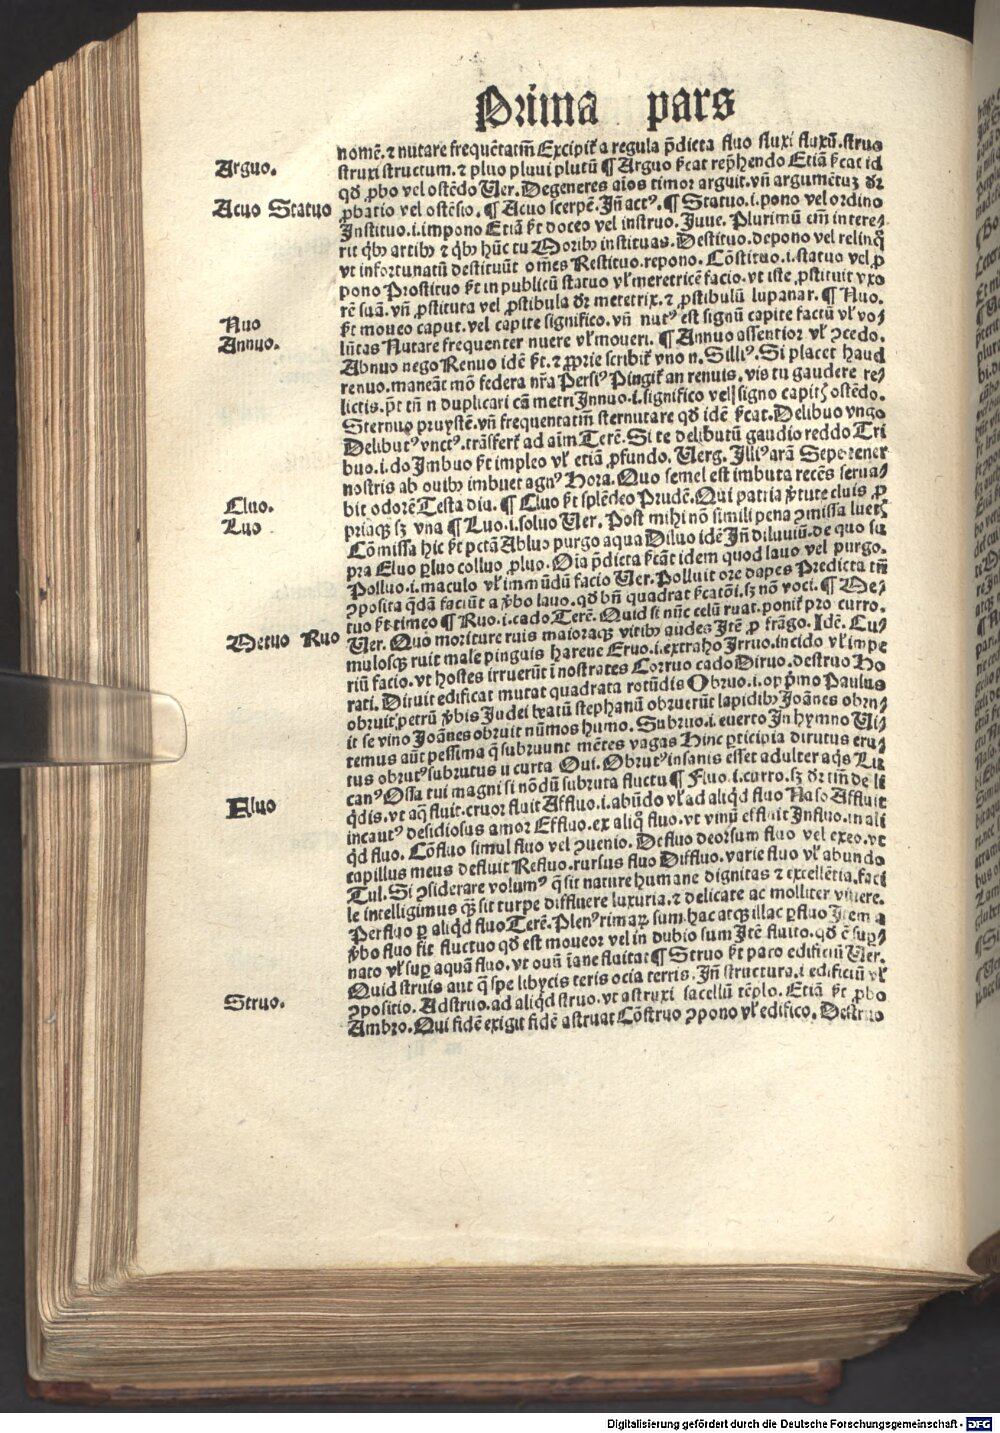 Prima pars
nomē. ⁊ nutare frequētatiūm Excipit̄ a regula p̄dicta fluo fluxi fluxū. struo
struxi structum. ⁊ pluo pluui plutū ¶ Arguo s̄cat rep̄hendo Etiā s̄cat id
qđ ꝓbo vel ostēdo Uer. Degeneres aīos timor arguit. vn̄ argumētuꝫ dr̄
ꝓbatio vel ostēsio. ¶ Acuo scerpē. Jn̄ actꝰ. ¶ Statuo .i. pono vel ordino
Jnstituo .i. impono Etiā s̄t doceo vel instruo. Juue. Plurimū em̄ intere⸗
rit qͥbꝰ artibꝰ ⁊ qͥbꝰ hūc tu Moribꝰ instituas. Destituo. depono vel relinqͦ
vt infortunatū destituūt om̄es Restituo. repono. Cōstituo .i. statuo vel ꝓ
pono Prostituo s̄t in publicū statuo vl̓ meretricē facio. vt iste ꝓstituit vxo
rē suā. vn̄ ꝓstituta vel ꝓstibula dr̄ meretrix. ⁊ ꝓstibulū lupanar. ¶ Nuo.
s̄t moueo caput. vel capite significo. vn̄ nutꝰ est signū capite factū vl̓ vo⸗
lūtas Nutare frequenter nuere vl̓ moueri. ¶ Annuo assentior vl̓ ꝯcedo.
Abnuo nego Renuo idē s̄t. ⁊ ꝓprie scribit̄ vno n. Silliꝰ. Si placet haud
renuo. maneāt mō federa nr̄a Persiꝰ Pingit̄ an renuis. vis tu gaudere re⸗
lictis. p̄t tn̄ n duplicari cā metri Jnnuo .i. significo vel signo capitꝭ ostēdo.
Sternuo pruystē. vn̄ frequentatiūm sternutare qđ idē s̄cat. Delibuo vngo
Delibutꝰ vnctꝰ. trāsfert̄ ad aīm Terē. Si te delibutū gaudio reddo Tri
buo .i. do Jmbuo s̄t impleo vl̓ etiā ꝓfundo. Uerg. Jlliꝰ arā Sepe tener
nostris ab ouibꝰ imbuet agnꝰ Hora. Quo semel est imbuta recēs serua⸗
bit odorē Testa diu. ¶ Cluo s̄t splēdeo Prudē. Qui patria v̓tute cluis ꝓ
priaqꝫ sꝫ vna ¶ Luo .i. soluo Uer. Post mihi nō simili pena ꝯmissa luetꝭ
Cōmissa hic s̄t pctā Abluo purgo aqua Diluo idē Jn̄ diluuiū. de quo su
pra Eluo ꝑluo colluo ꝓluo. Oīa p̄dicta s̄cāt idem quod lauo vel purgo.
Polluo .i. maculo vl̓ immūdū facio Uer. Polluit ore dapes Predicta tn̄
ꝯposita qdā faciūt a v̓bo lauo. qđ bn̄ quadrat s̄catōi. sꝫ nō voci. ¶ Me⸗
tuo s̄t timeo ¶ Ruo .i. cado Terē. Quid si nūc celū ruat. ponit̄ pro curro.
Uer. Quo moriture ruis maioraqꝫ viribꝰ audes Jtē ꝓ frāgo. Jdē. Cu⸗
mulosqꝫ ruit male pinguis harene Eruo .i. extraho Jrruo. incido vl̓ impe
riū facio. vt hostes irruerūt ī nostrates Corruo cado Diruo. destruo Ho
rati. Diruit edificat mutat quadrata rotūdis Obruo .i. opp̄mo Paulus
obruit petrū v̓bis Judei btatū stephanū obruerūt lapidibꝰ Joānes obru⸗
it se vino Joānes obruit nūmos humo. Subruo .i. euerto Jn hymno Ui⸗
temus aūt pessima q̄ subruunt mētes vagas Hinc ꝑticipia dirutus eru⸗
tus obrutꝰ subrutus u curta Oui. Obrutꝰ insanis esset adulter aqͥs Lu
canꝰ Ossa tui magni si nōdū subruta fluctu ¶ Fluo .i. curro. sꝫ dr̄ tm̄ de li
qͥdis. vt aq̄ fluit. cruor fluit Affluo .i. abūdo vl̓ ad aliqͥd fluo Naso Affluit
incautꝰ desidiosus amor Effluo. ex aliqͦ fluo. vt vinū effluit Jnfluo. in ali
qͥd fluo. Cōfluo simul fluo vel ꝯuenio. Defluo deorsum fluo vel exeo. vt
capillus meus defluit Refluo. rursus fluo Diffluo. varie fluo vl̓ abundo
Tul. Si ꝯsiderare volumꝰ q̄ sit nature humane dignitas ⁊ excellētia. faci
le intelligimus qꝫ sit turpe diffluere luxuria. ⁊ delicate ac molliter viuere.
Perfluo ꝑ aliqͥd fluo Terē. Plenꝰ rimaꝝ sum. hac atqꝫ illac ꝑfluo Jtem a
v̓bo fluo fit fluctuo qđ est moueor vel in dubio sum Jtē fluito. qđ ē suꝑ⸗
nato vl̓ suꝑ aquā fluo. vt ouū īane fluitat ¶ Struo s̄t paro edificiū Uer.
Quid struis aut q̄ spe libycis teris ocia terris. Jn̄ structura .i. edificiū vl̓
ꝯpositio. Adstruo. ad aliqͥd struo. vt astruxi sacellū tēplo. Etiā s̄t ꝓbo
Ambro. Qui fidē exigit fidē astruat Cōstruo ꝯpono vl̓ edifico. Destruo
Arguo.
Acuo Statuo
Nuo
Annuo.
Cluo.
Luo
Metuo Ruo
Fluo
Struo.
Digitalisierung gefördert durch die Deutsche Forschungsgemeinschaft - DFG